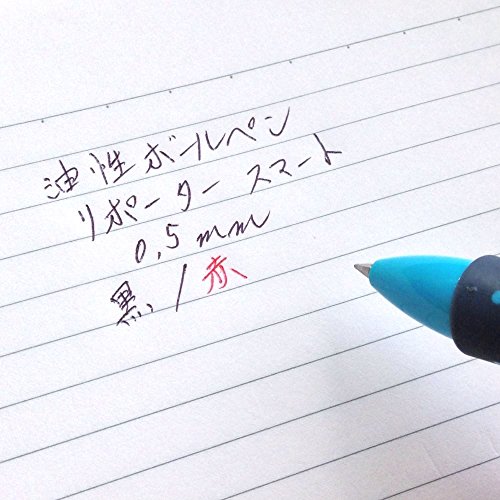 油性ボールペン
リポーター スマート
0.5mm
黒/赤